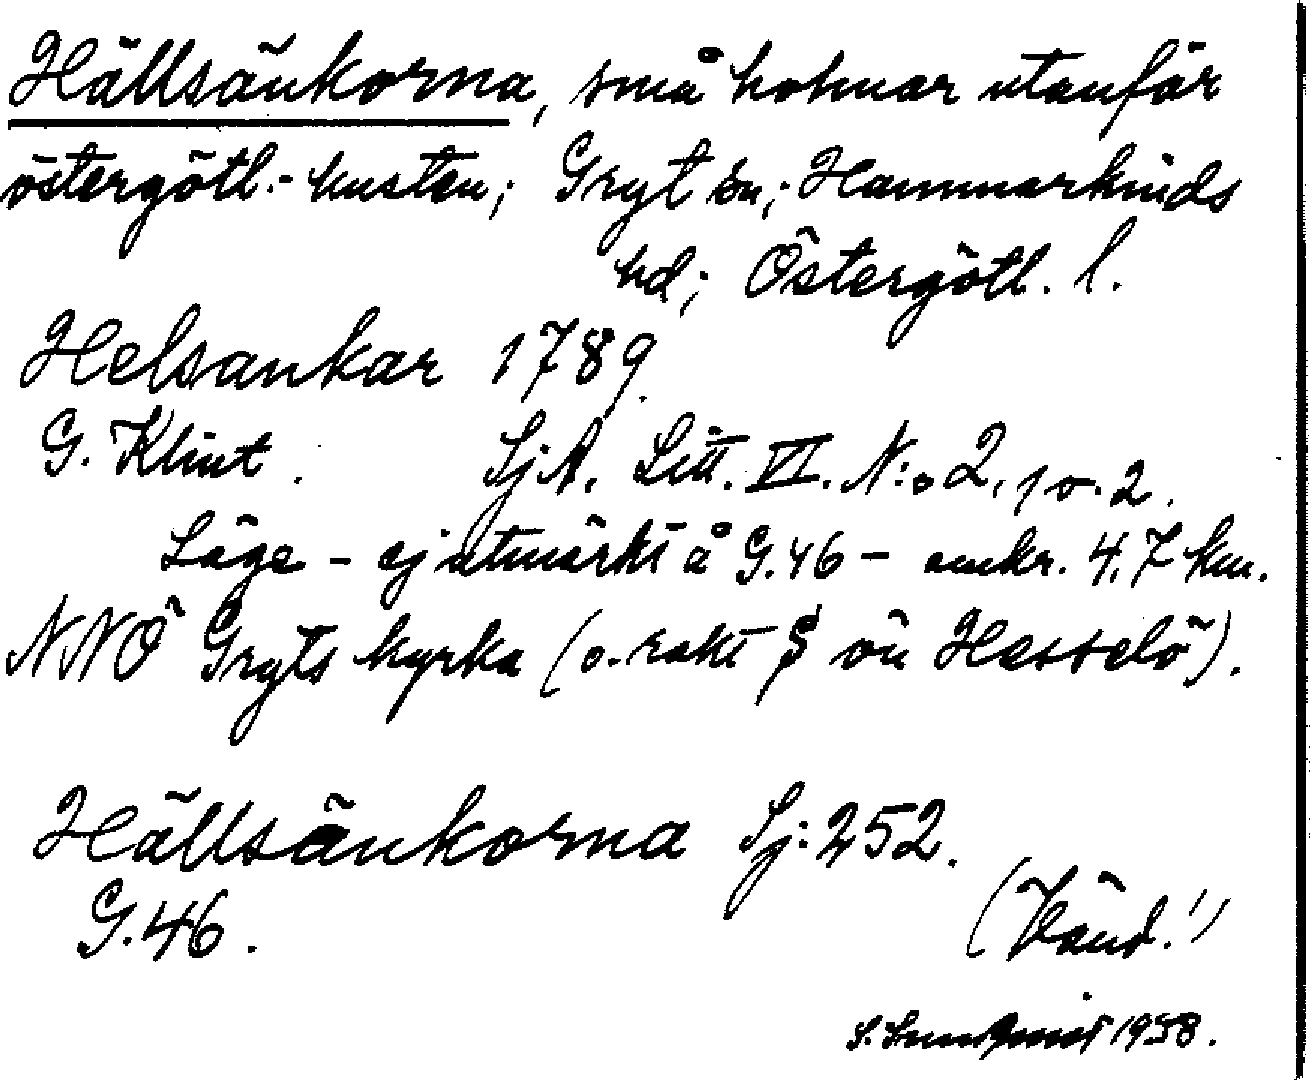 Hällsänkorna, små holmar utanför
östergötl.- kusten; Gryt sn; Hammarkinds
hd; Östergötl. l.
Helsankar 1789.
G. Klint. SjA. Litt. VI. N:o 2, 1 o. 2.
Läge - ej utmärkt å G.46 - omkr. 4,7 km.
NNÖ Gryts kyrka (o. rakt S om Hesselö).
Hällsänkorna Sj: 252.
G.46.
(Vänd!)
S. 1958.